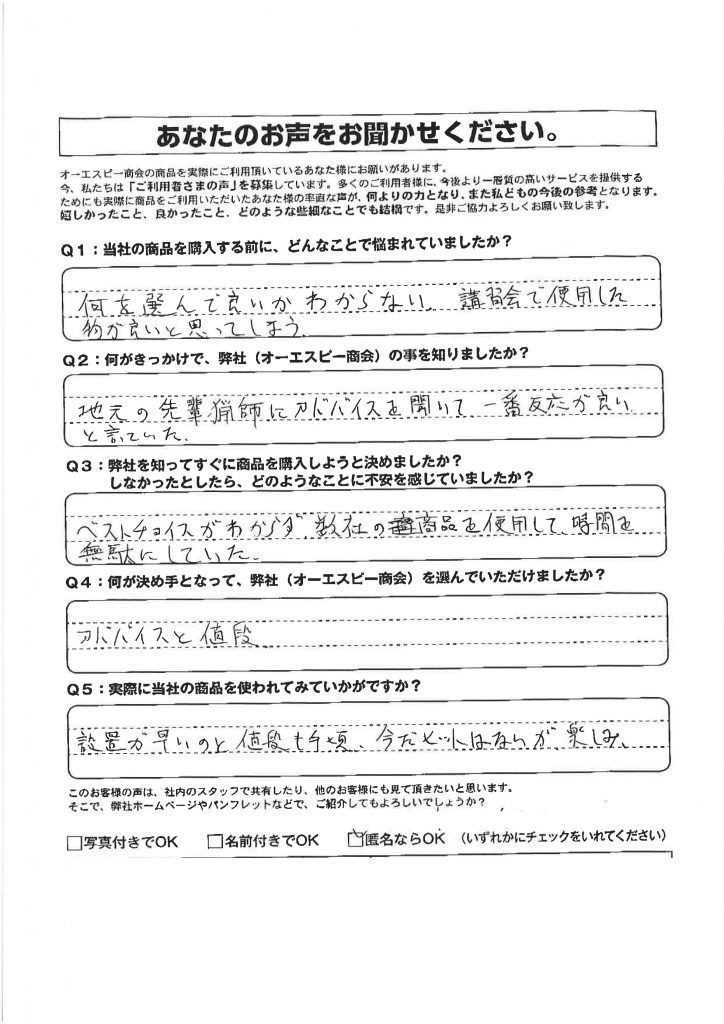 あなたのお声をお聞かせください。
オーエスピー商会の商品を実際にご利用頂いているあなた様にお願いがあります。
今、私たちは「ご利用者さまの声」を募集しています。多くのご利用者様に、今後より一層質の高いサービスを提供する
ためにも実際に商品をご利用いただいたあなた様の率直な声が、何よりの力となり、また私どもの今後の参考となります。
嬉しかったこと、良かったこと、どのような些細なことでも結構です。是非ご協力よろしくお願い致します。
Q1：当社の商品を購入する前に、どんなことで悩まれていましたか？
何を選んで良いかわからない。講習会で使用した
物が良いと思ってしまう。
Q2：何がきっかけで、弊社（オーエスピー商会）の事を知りましたか？
地元の先輩猟師にアドバイスを聞いて一番反応が良い
と言ていた。
Q3：弊社を知ってすぐに商品を購入しようと決めましたか？
しなかったとしたら、どのようなことに不安を感じていましたか？
ベストチョイスがわからず、数社の商品を使用して、時間を
無駄にしていた。
Q4：何が決め手となって、弊社（オーエスピー商会）を選んでいただけましたか？
アドバイスと値段
Q5：実際に当社の商品を使われてみていかがですか？
設置が早いのと値段も手頃、今だヒットはないが、楽しみ、
このお客様の声は、社内のスタッフで共有したり、他のお客様にも見て頂きたいと思います。
そこで、弊社ホームページやパンフレットなどで、ご紹介してもよろしいでしょうか？
□写真付きでOK □名前付きでOK □匿名ならOK （いずれかにチェックをいれてください）